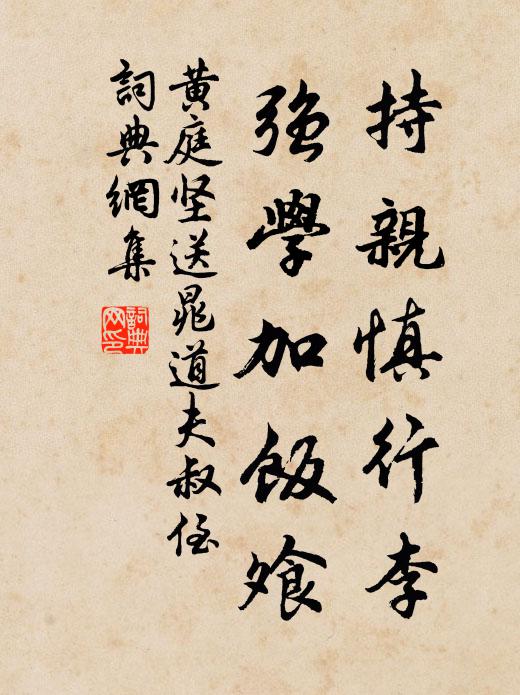 持親慎行李
強學加飯飧
黄庭坚送晁道夫叔侄
詞典網集
詞典网印